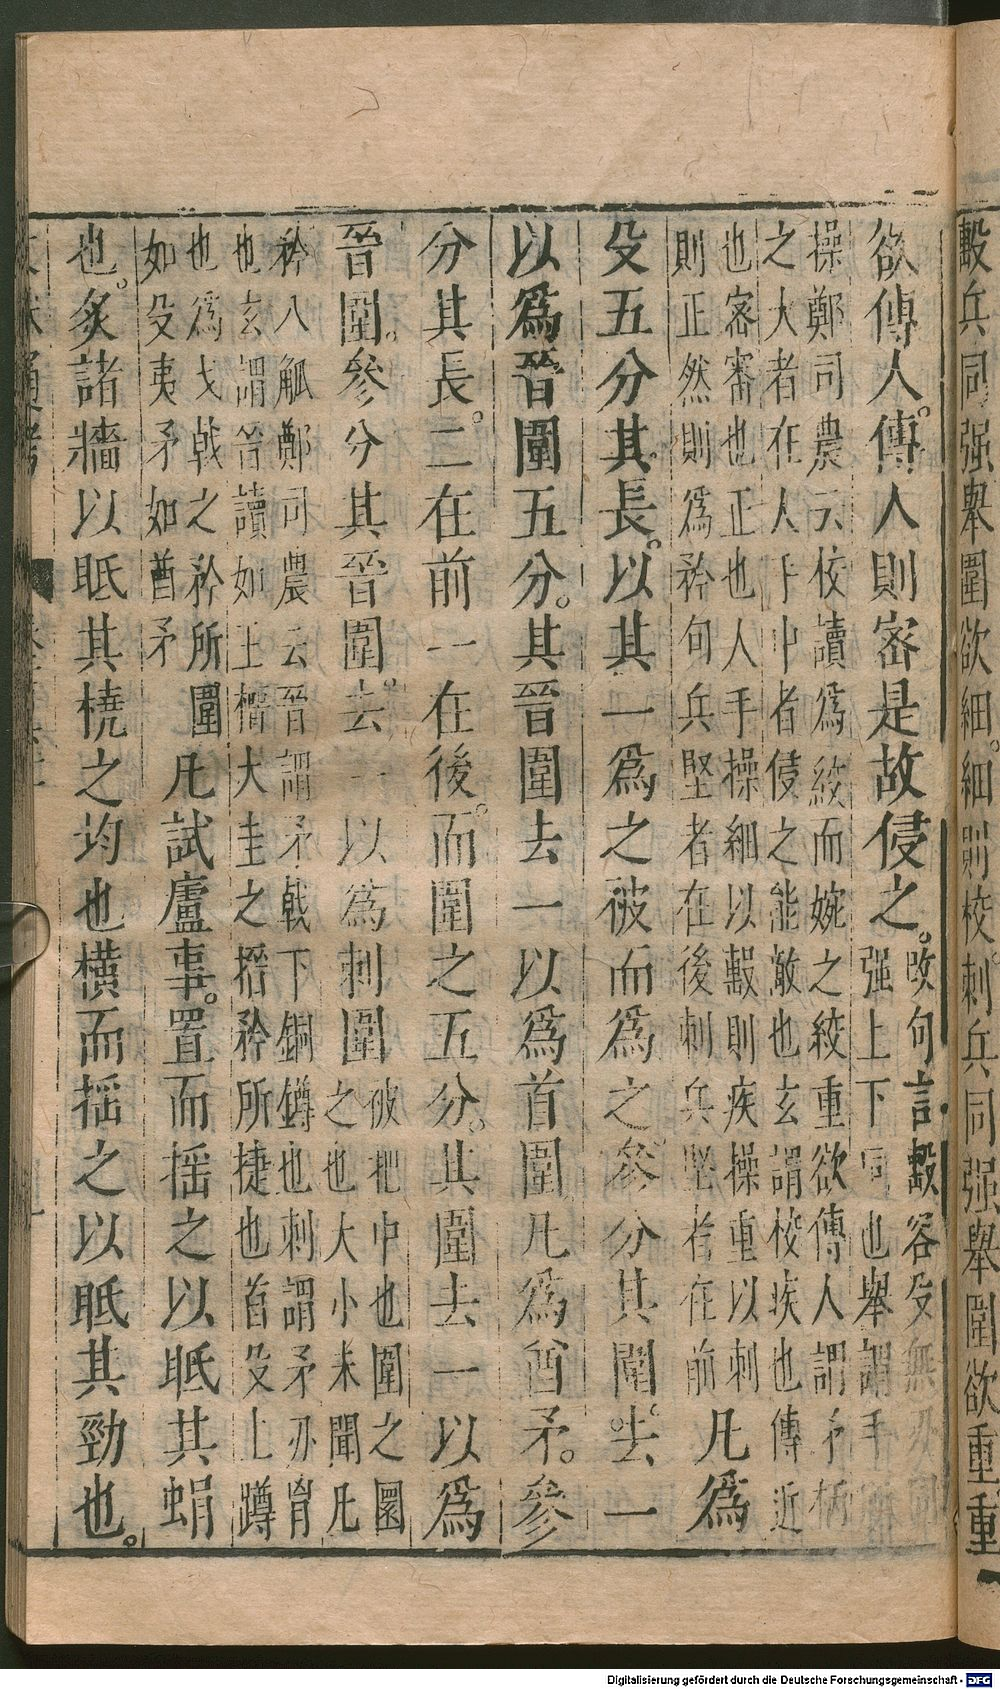 毄兵同强舉圍欲細。細則校。刺兵同强舉圍欲重重
欲傅人。傅人則密是故侵之。
改句言毄容殳無刃同
强上下同也舉謂手
操鄭司農云校讀爲絞而婉之絞重欲傅人謂矛柄
之大者在人手中者侵之能敵也玄謂校疾也傅近
也密審也正也人手操細以毄則疾操重以刺
則正然則爲矜句兵堅者在後刺兵堅者在前
凡爲
殳五分其長。以其一爲之被而爲之。參分其圍。去一
以爲晉圍五分。其晉圍去一以爲首圍凡爲酋矛。參
分其長。二在前一在後。而圍之五分。其圍去一以爲
晉圍。參分其晉圍。去一以爲刺圍
被把中也圍之圜
之也大小未聞凡
矜八觚鄭司農云晉謂矛戟下銅鐏也刺謂矛刃胷
也玄謂晉讀如王搢大圭之搢矜所捷也首殳上鐏
也爲戈戟之矜所圍
如殳夷矛如酋矛
凡試廬事。置而揺之以眂其蜎
也。炙諸牆以眂其橈之均也橫而揺之以眂其勁也。
Digitalisierung gefördert durch die Deutsche Forschungsgemeinschaft - DFG